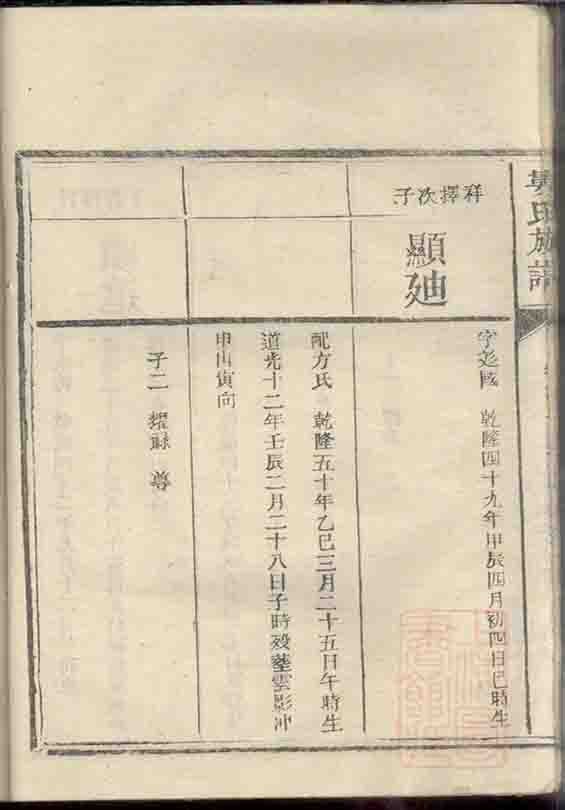 氏族譜
祥擇次子
顯廸
字 國 乾隆四十九年甲辰四月初四日巳時生
配方氏 乾隆五十年乙巳三月二十五日午時生
道光十二年壬辰二月二十八日子時歿塟雲影冲
申山寅向
子二 耀